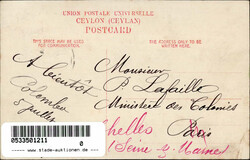 UNION POSTALE UNIVERSELLE
CEYLON (CEYLAN)
POSTCARD
THIS SPACE MAY BE USED
FOR COMMUNICATION.
THE ADDRESS ONLY TO BE
WRITTEN HERE.
A bientôt
Colombo
5 juillet
Monsieur
P. Lafaille
Ministère des Colonies
Paris
Chelles
Seine et Marne
0533501211
0
www.slade-auktionen.de